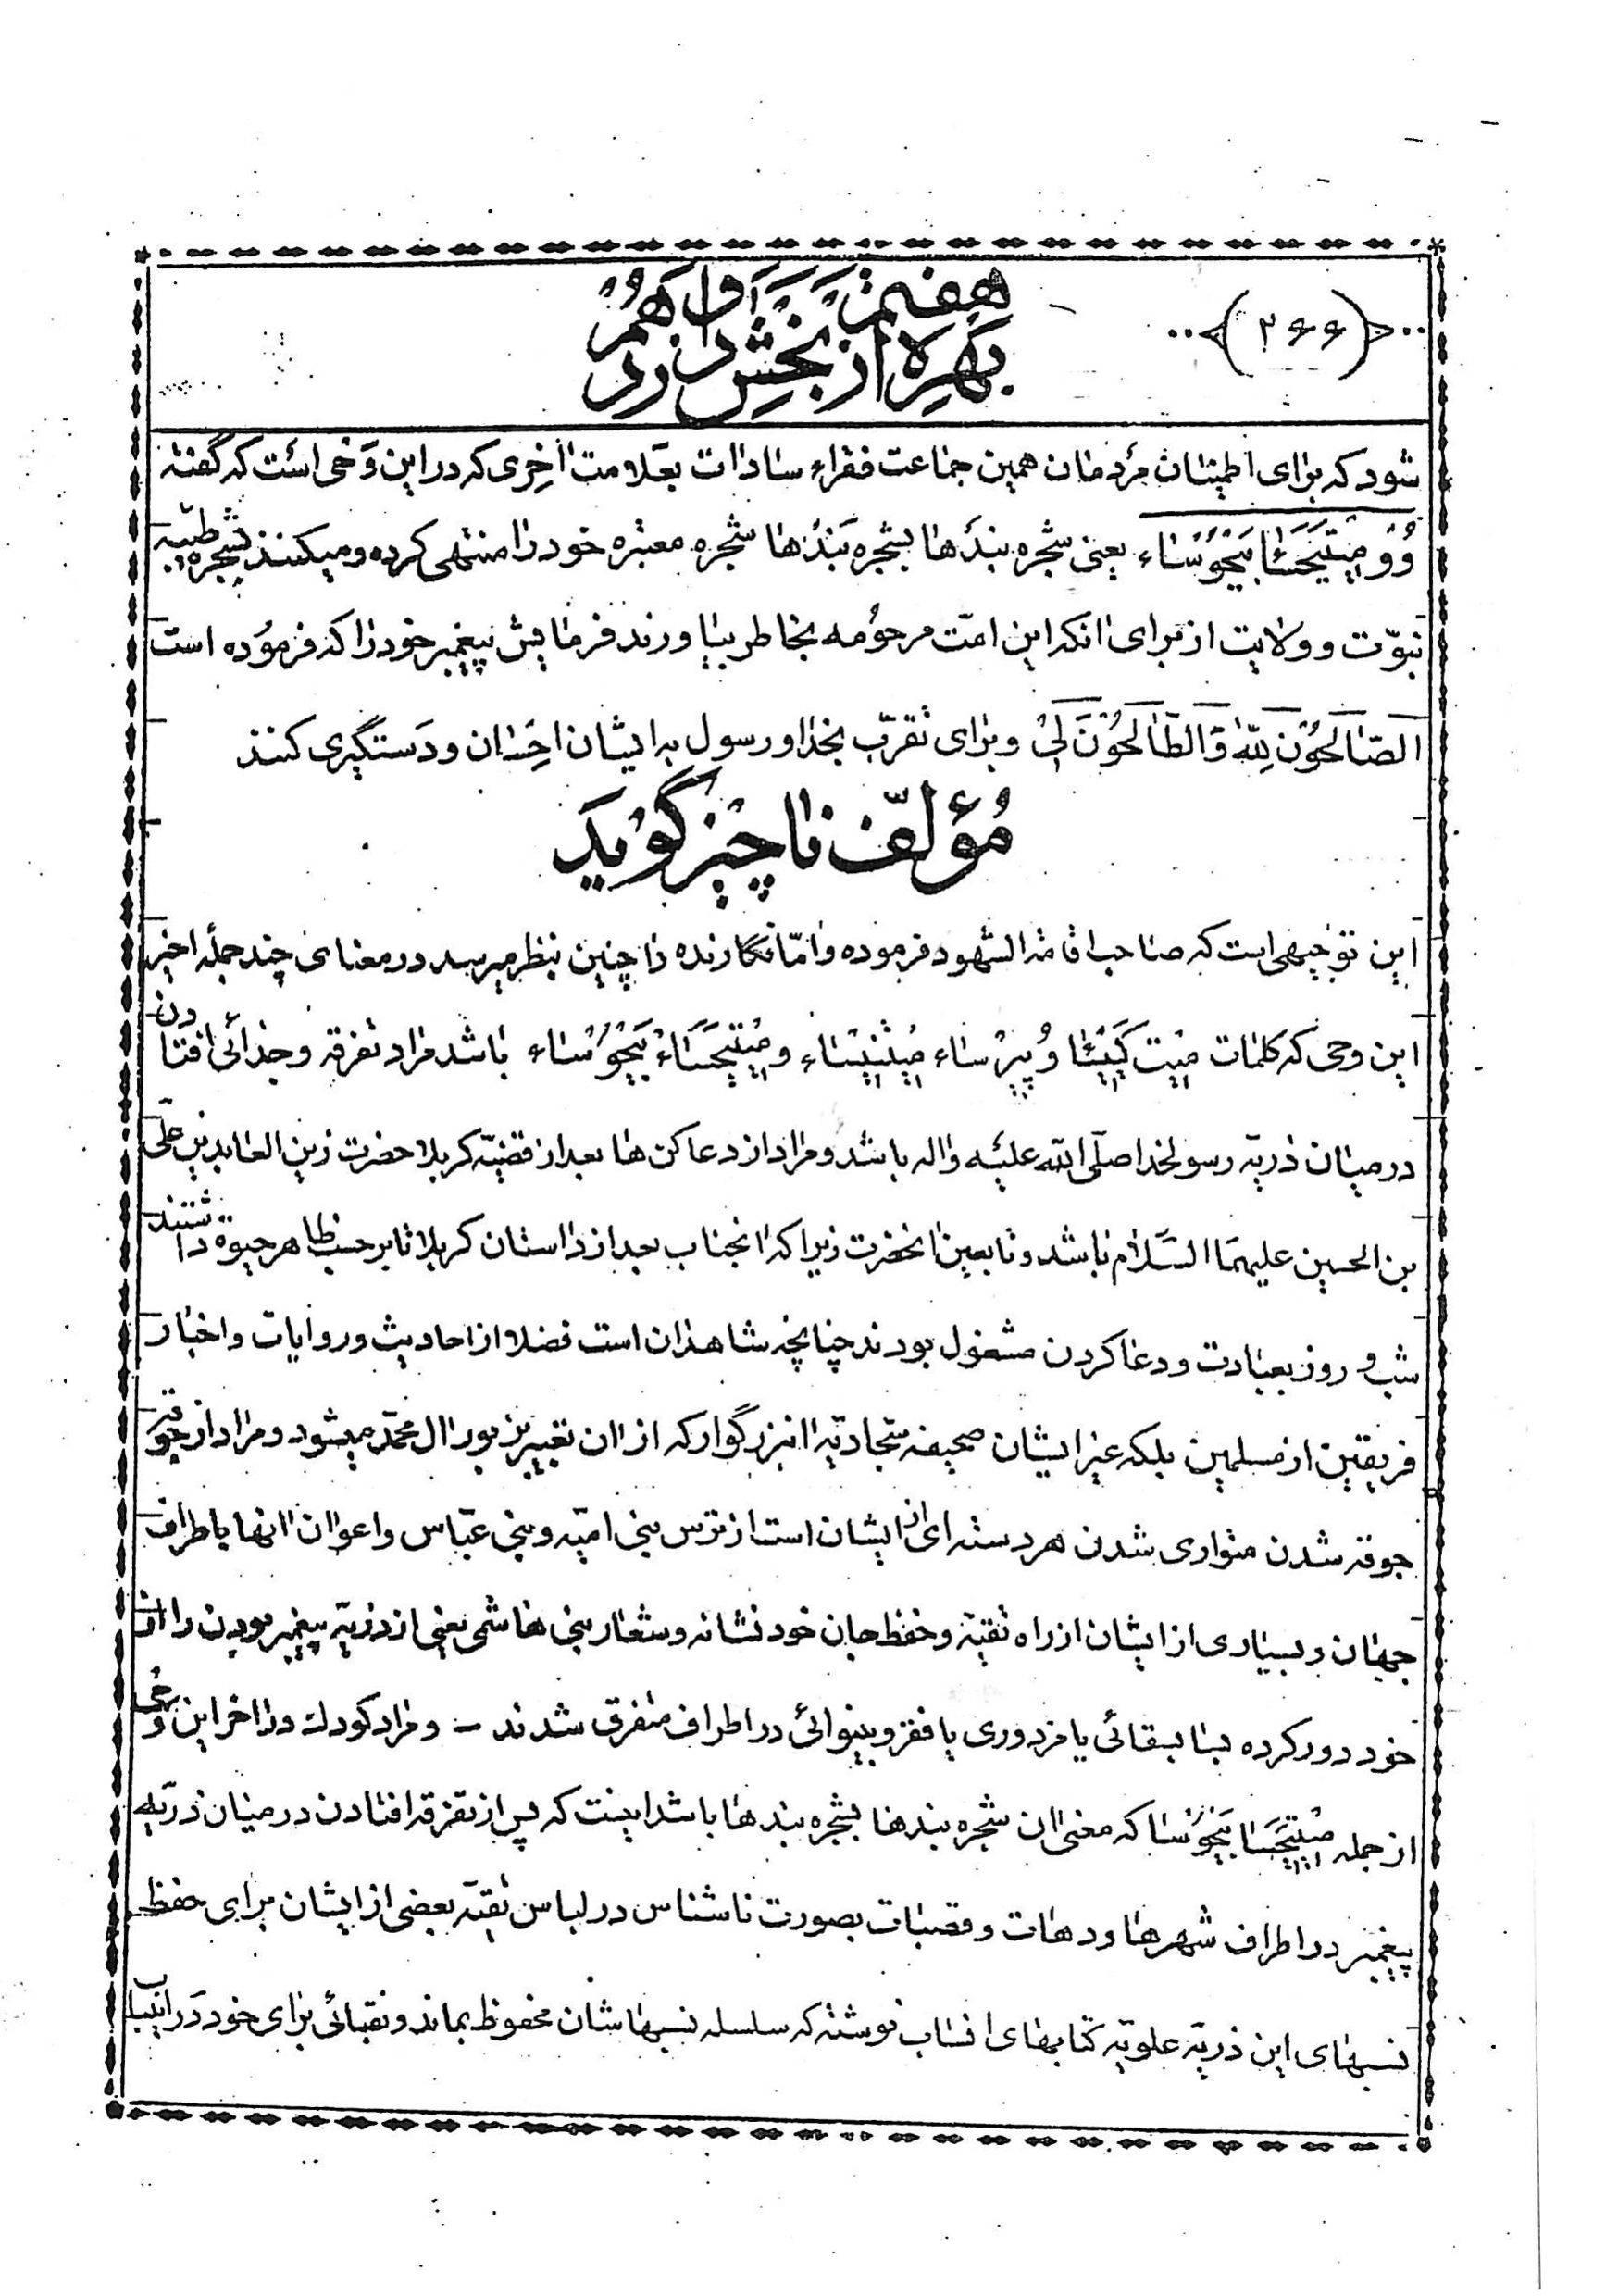 ﴿۲۶۶﴾
بهره هفتم از بخش اول در دهم
شود که برای اطمینان مردمان همین جماعت فقراء سادات بعلامت اخری که در این وحی است که گفته
وو میتیحسا بیحوساء یعنی شجره بندها بشجره بندها شجره معتبره خود را منتهی کرده و میکنند بشجره طیبه
نبوت و ولایت از برای انکه این امت مرحومه بخاطر بیاورند فرمایش پیغمبر خود را که فرموده است
الصالحون لله و الطالحون لی و برای تقرب بخدا و رسول به ایشان احسان و دستگیری کنند
مؤلف ناچیز گوید
این توجیهی است که صاحب اقامة الشهود فرموده و اما نگارنده را چنین بنظر میرسد در معنای چند جمله اخیر
این وحی که کلمات میت کیسا و پیرساء میثنیساء و میتیحساء بیحوساء باشد مراد تفرقه و جدائی افتادن
در میان ذریه رسولخدا صلی الله علیه واله باشد و مراد از دعا کن ها بعد از قضیه کربلا حضرت زین العابدین علی
بن الحسین علیهما السلام باشد و تابعین انحضرت زیرا که انجناب بعد از داستان کربلا تا بر حسب ظاهر حیوة داشتند
شب و روز بعبادت و دعا کردن مشغول بودند چنانچه شاهد ان است فضلا از احادیث و روایات و اخبار
فریقین از مسلمین بلکه غیر ایشان صحیفه سجادیه انبزرگوار که از ان تعبیر بزبور ال محمد میشود و مراد از جوقه
جوقه شدن متواری شدن هر دسته ای از ایشان است از ترس بنی امیه و بنی عباس و اعوان انها باطراف
جهان و بسیاری از ایشان از راه تقیه و حفظ جان خود نشانه و شعار بنی هاشمی یعنی از ذریه پیغمبر بودن را از
خود دور کرده بنا بسقائی یا مزدوری یا فقر و بینوائی در اطراف متفرق شدند - و مراد کودک در اخر این وحی
از جمله میتیحسا بیحوسا که معنی ان شجره بندها بشجره بندها باشد اینست که پس از تفرقه افتادن در میان ذریه
پیغمبر در اطراف شهرها و دهات و قصبات بصورت ناشناس در لباس تقیه بعضی از ایشان برای حفظ
نسبهای این ذریه علویه کتابهای انساب نوشته که سلسله نسبهاشان محفوظ بماند و نقبائی برای خود در انساب